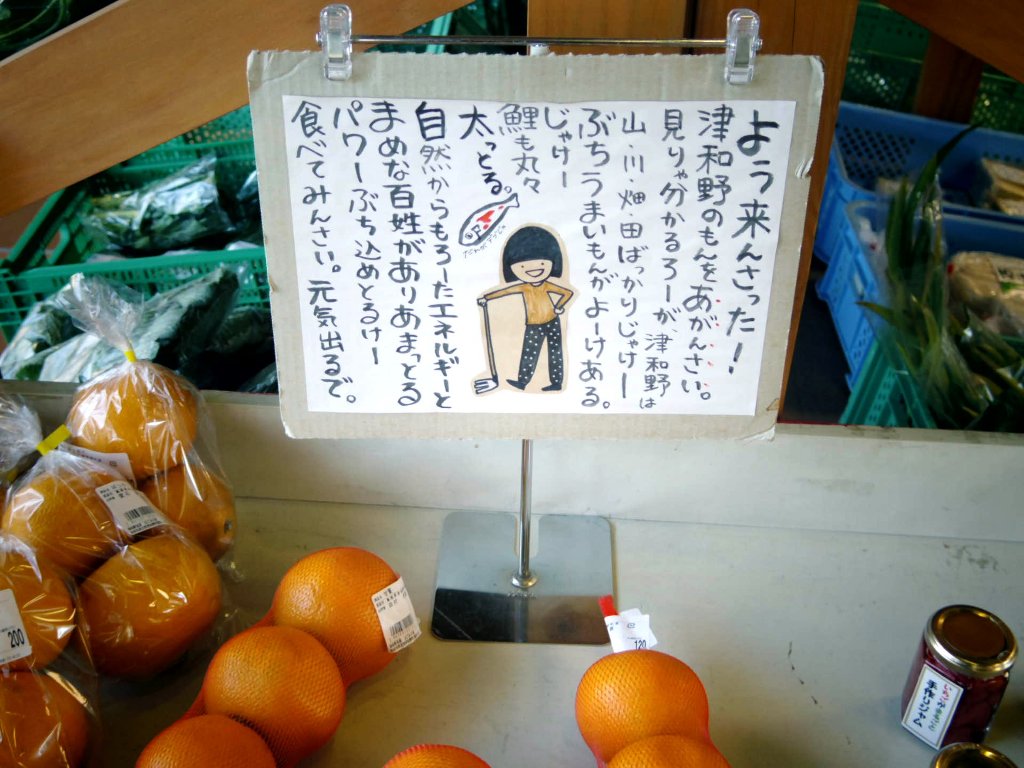 よう来んさった！
津和野のもんをあがんさい。
見りゃ分かるろーが、津和野は
山・川・畑・田ばっかりじゃけー
ぶちうまいもんがよーけある。
じゃけー
鯉も丸々
太っとる。
自然からもろーたエネルギーと
まめな百姓がありあまっとる
パワーぶち込めとるけー
食べてみんさい。元気出るで。
200
120
手作りジャム